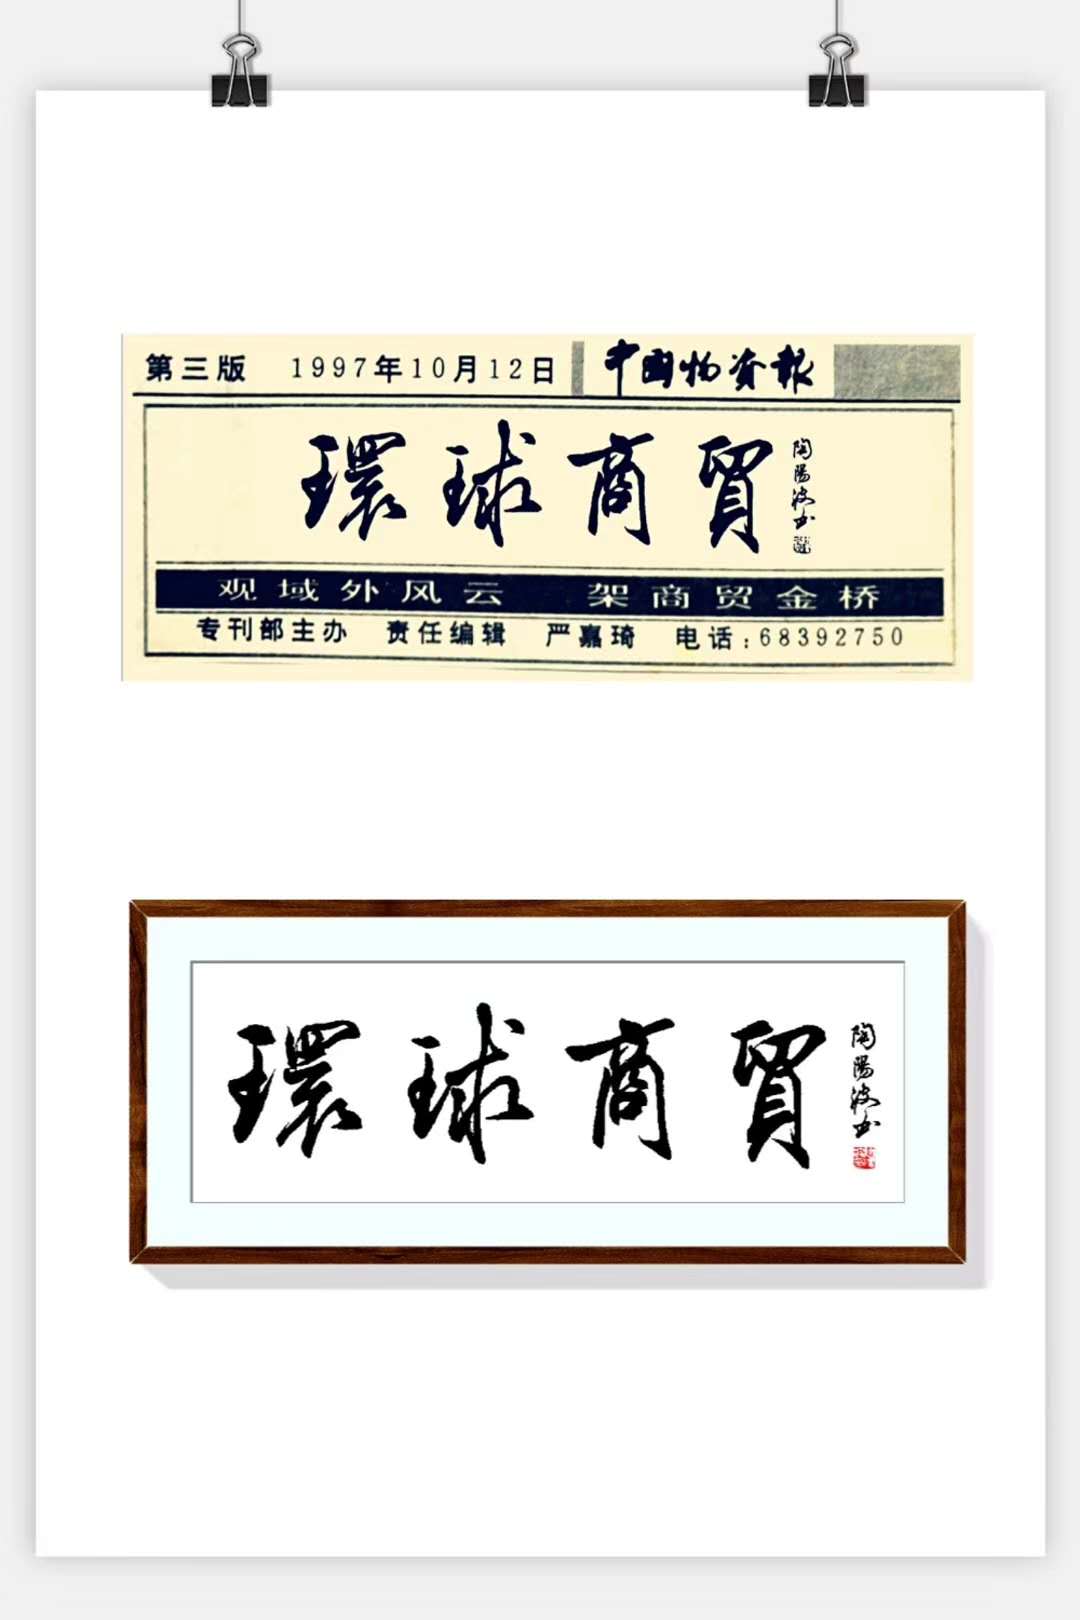 第三版 1997年10月12日 中国物资報
環球商貿
陶陽波书
观域外风云 架商贸金桥
专刊部主办 责任编辑 严嘉琦 电话:68392750
環球商貿
陶陽波书